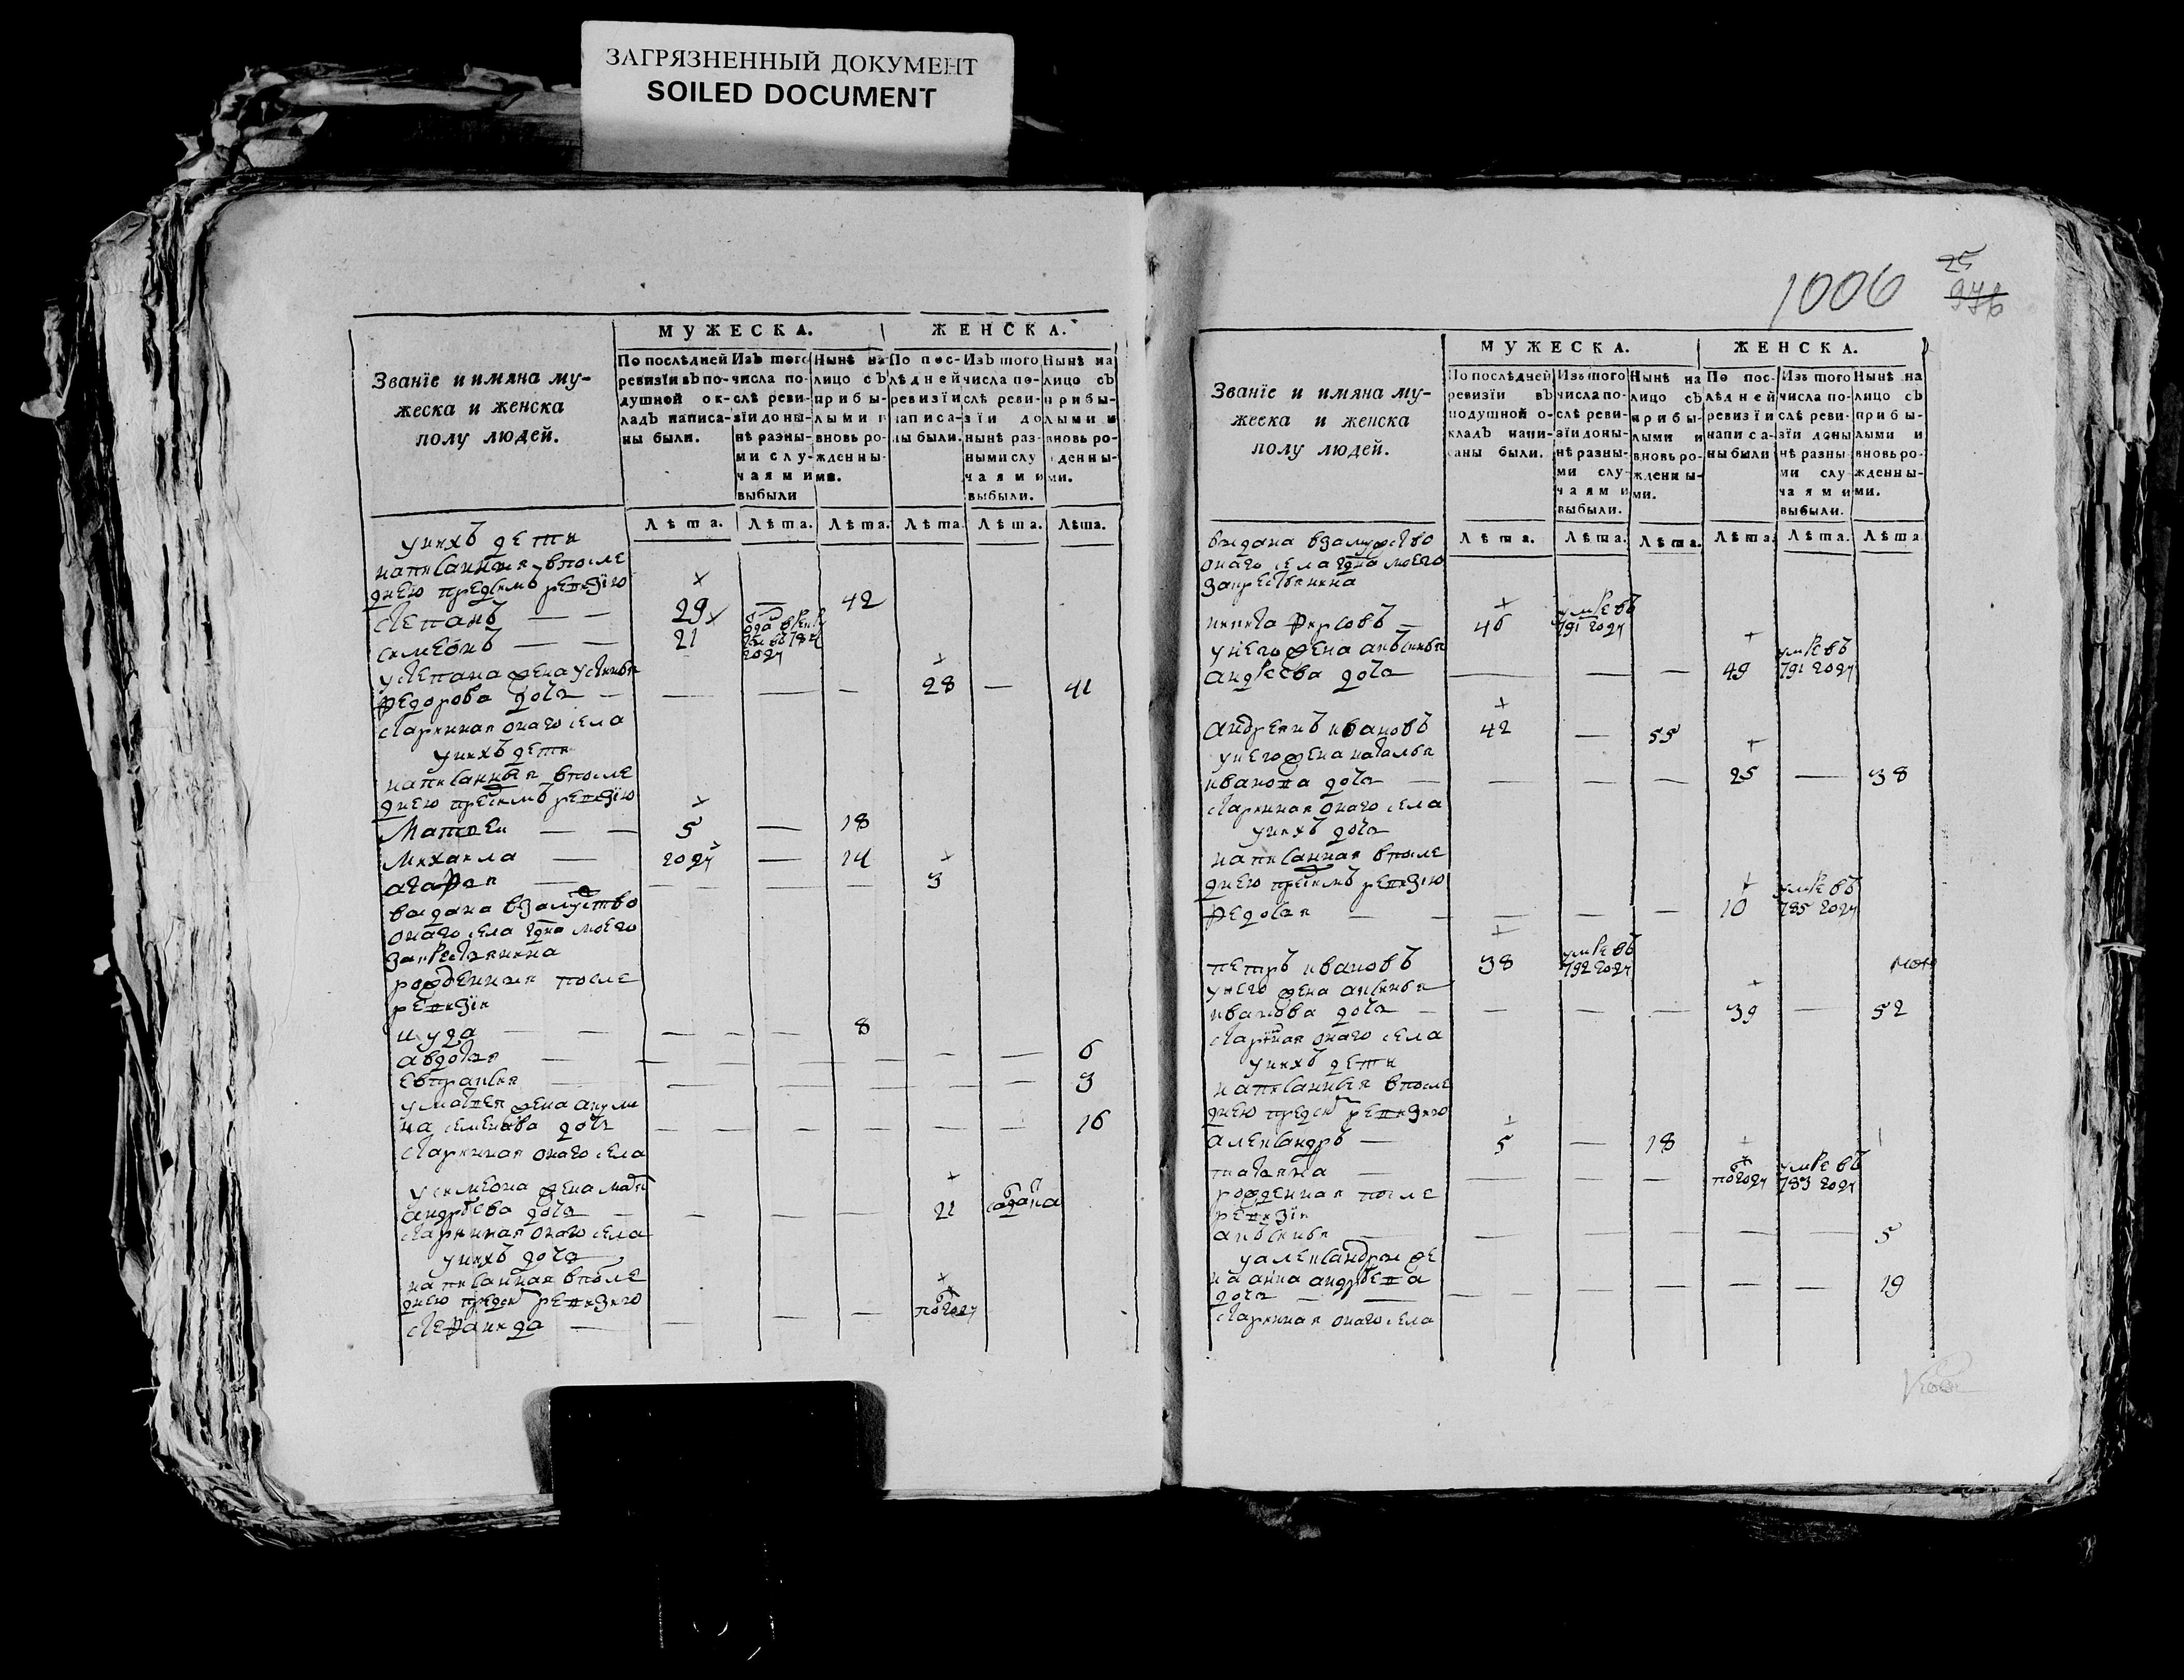 ЗАГРЯЗНЕННЫЙ ДОКУМЕНТ
SOILED DOCUMENT
Званїе и имяна му-
жеска и женска
полу людей.
МУЖЕСКА.
ЖЕНСКА.
По послѣдней ревизїи въ по- душной ок- ладъ написа- ны были.
Изъ того числа по- слѣ реви- зїи доны- нѣ разны- ми слу- чаями выбыли
Нынѣ на лицо съ прибы- лыми и вновь ро- жденны- ми.
По пос- лѣдней ревизїи написа- ны были.
Изъ того числа по- слѣ реви- зїи до нынѣ раз- ными слу чаями выбыли.
Нынѣ на лицо съ прибы- лыми и вновь ро- жденны- ми.
Лѣта. Лѣта. Лѣта. Лѣта. Лѣта. Лѣта.
унихъ дети
написанныя впосле
днею пред симъ ревизїю
степанъ — — 29 — 42
симеонъ — 21
году
устепана жена устинья
федорова дочь — — — — 28 — 41
старинная онаго села
унихъ дети
написанныя впосле
днею пред симъ ревизїю
Матвеи — — 5 — 18
михаила — году — 14
агафья — — — — 3
выдана взамужство
онаго села
закрестьянина
рожденныя после
ревизїи
иуда — — — — 8
авдотья — — — — — — 6
евпраксия — — — — — — 3
уматвея жена акули
на семенова дочь — — — — — — 16
старинная онаго села
усимеона жена
андреева дочь — — — — 21 отдана
старинная онаго села
унихъ дочь
написанная впосле
днею пред симъ ревизию
стефанида — — — — полгоду
1006
25
976
Званїе и имяна му-
жеска и женска
полу людей.
МУЖЕСКА.
ЖЕНСКА.
По послѣдней ревизїи въ подушной о- кладъ напи- саны были.
Изъ того числа по- слѣ реви- зїи доны- нѣ разны- ми слу- чаями выбыли.
Нынѣ на лицо съ прибы- лыми и вновь ро- жденны- ми.
По пос- лѣдней ревизїи написа- ны были
Изъ того числа по- слѣ реви- зїи доны нѣ разны- ми слу- чаями выбыли.
Нынѣ на лицо съ прибы- лыми и вновь ро- жденны- ми.
Лѣта. Лѣта. Лѣта. Лѣта. Лѣта. Лѣта
выдана взамужство
онаго села
закрестьянина
никита фирсовъ — 46 умре въ 791 году
унего жена аксинья
андреева дочь — — — 49 умре въ 791 году
андреянъ ивановъ 42 — 55
унего жена наталья
иванова дочь — — — — 25 — 38
старинная онаго села
унихъ дочь
написанная впосле
днею пред симъ ревизїю
федосья — — — — — 10 умре въ 785 году
петръ ивановъ 38 умре въ 792 году
унего жена аксинья
иванова дочь — — — — 39 — 52
старинная онаго села
унихъ дети
написанныя впосле
днею пред симъ ревизию
александръ — 5 — 18
татьяна — — — — полгоду умре въ 783 году
рожденная после
ревизїи
аксинья — — — — — — 5
уалександры же
на анна андреева
дочь — — — — — — 19
старинная онаго села